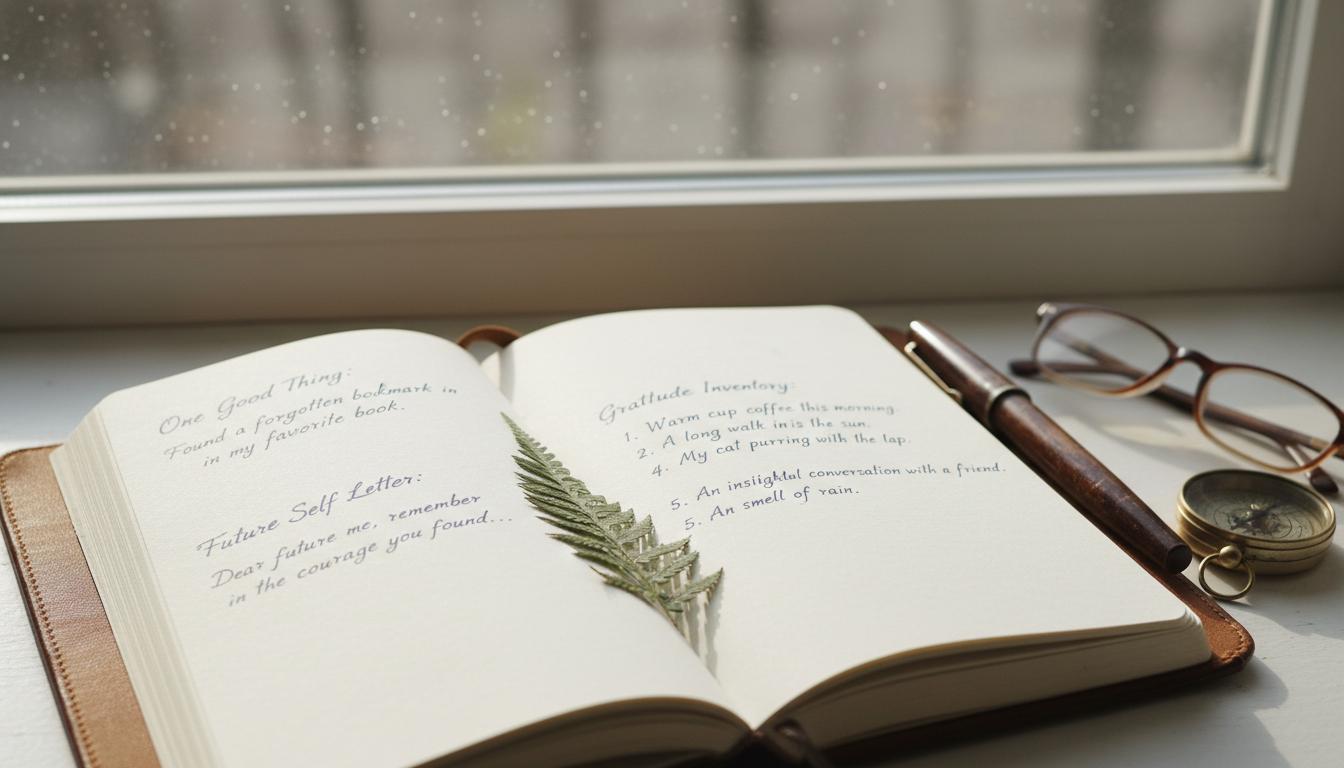 One Good Thing:
Found a forgotten bookmark in
in my favorite book.
Future Self Letter:
Dear future me, remember
in the courage you found...
Gratitude Inventory:
1. Warm cup coffee this morning.
2. A long walk in is the sun.
4. My cat purring with the lap.
5. An insightful conversation with a friend.
5. An smell of rain.